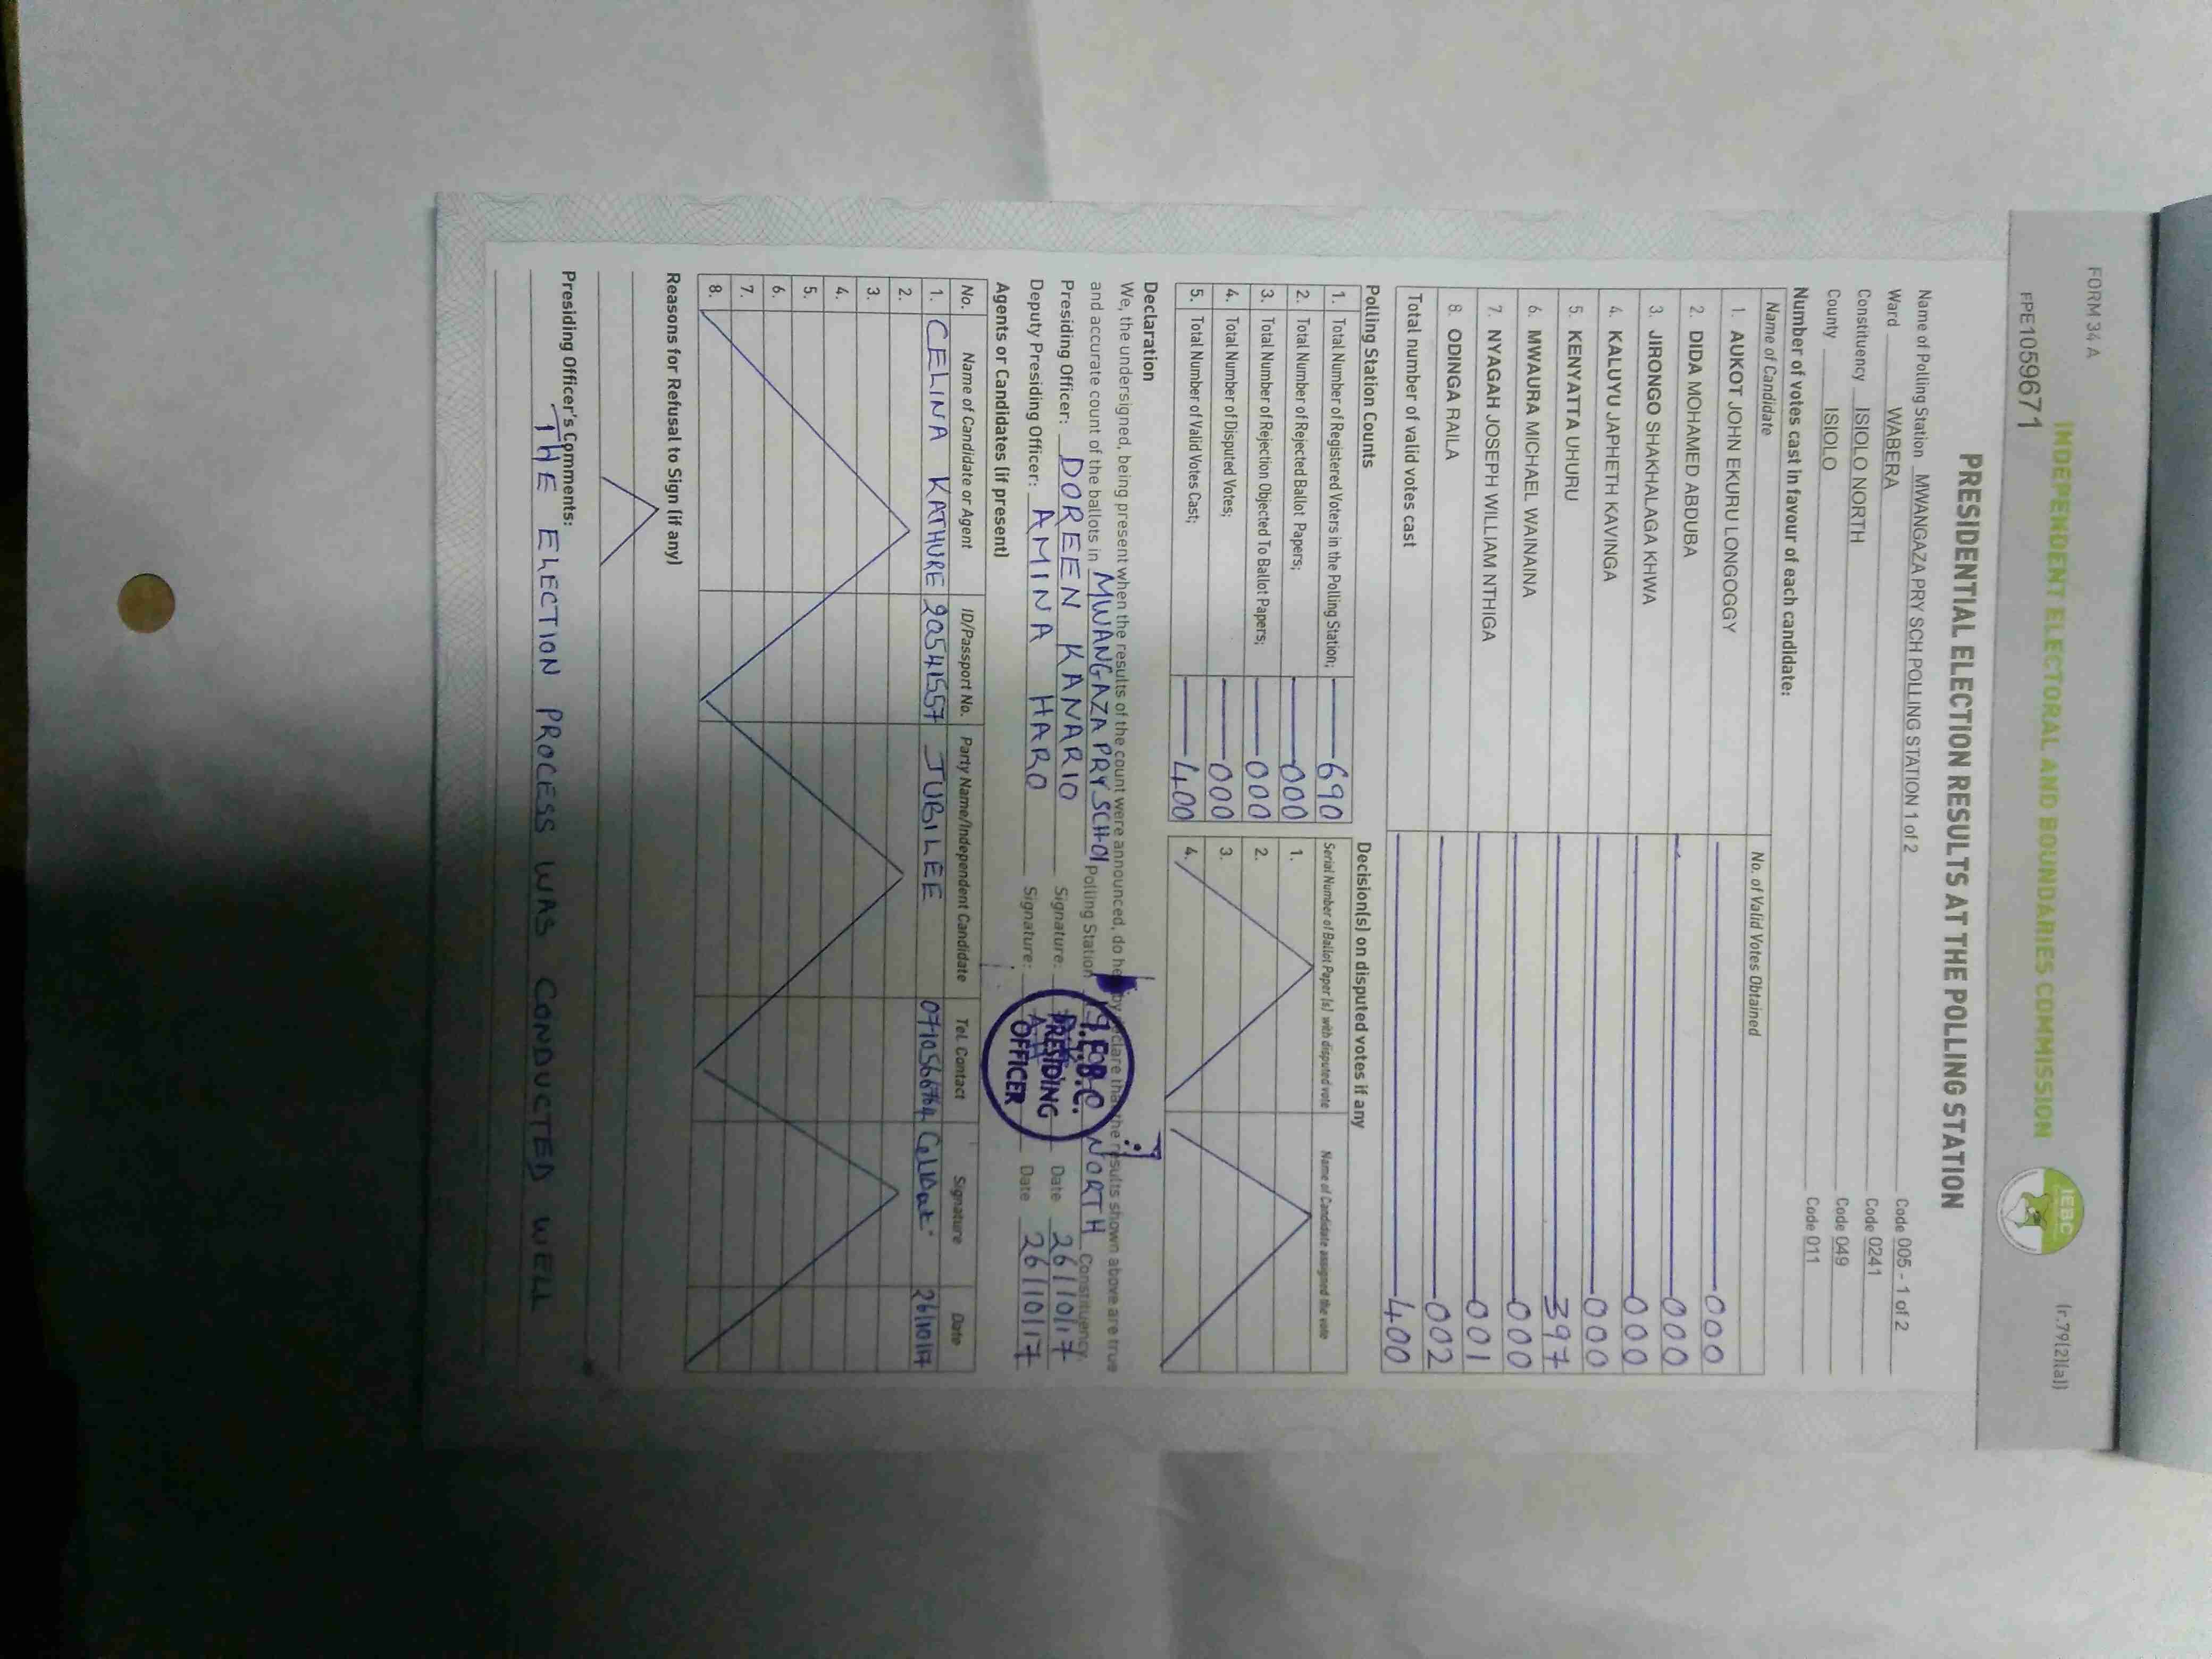 FORM 34 A
(r.79(2)(a))
INDEPENDENT ELECTORAL AND BOUNDARIES COMMISSION
IEBC
FPE1059671
PRESIDENTIAL ELECTION RESULTS AT THE POLLING STATION
Name of Polling Station MWANGAZA PRY SCH POLLING STATION 1 of 2 Code 005 - 1 of 2
Ward WABERA Code 0241
Constituency ISIOLO NORTH Code 049
County ISIOLO Code 011
Number of votes cast in favour of each candidate:
Name of Candidate No. of Valid Votes Obtained
1. AUKOT JOHN EKURU LONGOGGY 000
2. DIDA MOHAMED ABDUBA 000
3. JIRONGO SHAKHALAGA KHWA 000
4. KALUYU JAPHETH KAVINGA 000
5. KENYATTA UHURU 397
6. MWAURA MICHAEL WAINAINA 000
7. NYAGAH JOSEPH WILLIAM NTHIGA 001
8. ODINGA RAILA 002
Total number of valid votes cast 400
Polling Station Counts
1. Total Number of Registered Voters in the Polling Station; 690
2. Total Number of Rejected Ballot Papers; 000
3. Total Number of Rejection Objected To Ballot Papers; 000
4. Total Number of Disputed Votes; 000
5. Total Number of Valid Votes Cast; 400
Decision(s) on disputed votes if any
Serial Number of Ballot Paper (s) with disputed vote Name of Candidate assigned the vote
1.
2.
3.
4.
Declaration
We, the undersigned, being present when the results of the count were announced, do hereby declare that the results shown above are true
and accurate count of the ballots in MWANGAZA PRY SCHOl Polling Station NORTH Constituency.
Presiding Officer: DOREEN KANARIO Signature: Date 26/10/17
Deputy Presiding Officer: AMINA HARO Signature: Date 26/10/17
I.E.B.C.
PRESIDING
OFFICER
Agents or Candidates (if present)
No. Name of Candidate or Agent ID/Passport No. Party Name/Independent Candidate Tel. Contact Signature Date
1. CELINA KATHURE 20541557 JUBILEE 26/10/17
2.
3.
4.
5.
6.
7.
8.
Reasons for Refusal to Sign (if any)
Presiding Officer's Comments:
THE ELECTION PROCESS WAS CONDUCTED WELL